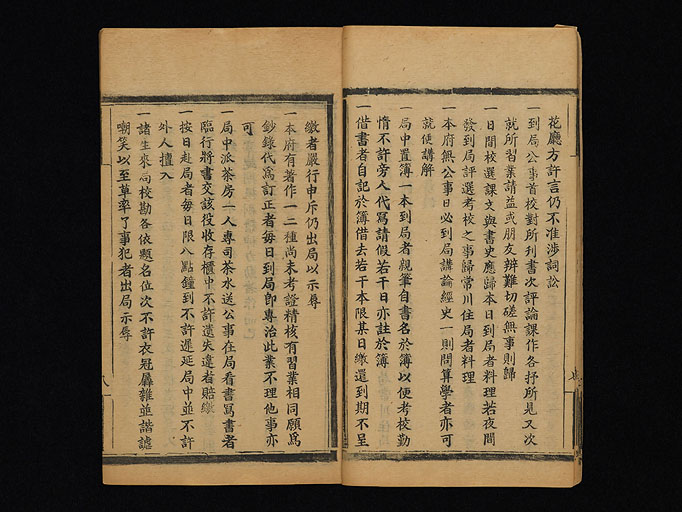 花廳方許言仍不准涉詞訟
一到局公事首校對所刊書次評論課作各抒所見又次
就所習業請益或朋友辨難切磋無事則歸
一日間校選課文與書史應歸本日到局者料理若夜間
發到局評選考校之事歸常川住局者料理
一本府無公事日必到局講論經史一則問算學者亦可
就便講解
一局中置簿一本到局者親筆自書名於簿以便考校勤
惰不許旁人代寫請假若干日亦註於簿
一借書者自記於簿借去若干本限某日繳還到期不呈
繳者嚴行申斥仍出局以示辱
一本府有著作一二種尚未考證精核有習業相同願爲
鈔錄代寫訂正者每日到局卽專治此業不理他事亦
可
一局中派茶房一人專司茶水送公事在局看書寫書者
臨行將書交該役收存櫃中不許遺失違者賠繳
一按日赴局者每日限八點鐘到不許遲延局中並不許
外人擅入
一諸生來局校勘各依題名位次不許衣冠羼雜並諧謔
嘲笑以至草率了事犯者出局示辱
八